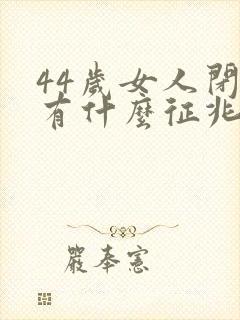 44歲女人閉
有什麼征兆
嚴奉憲